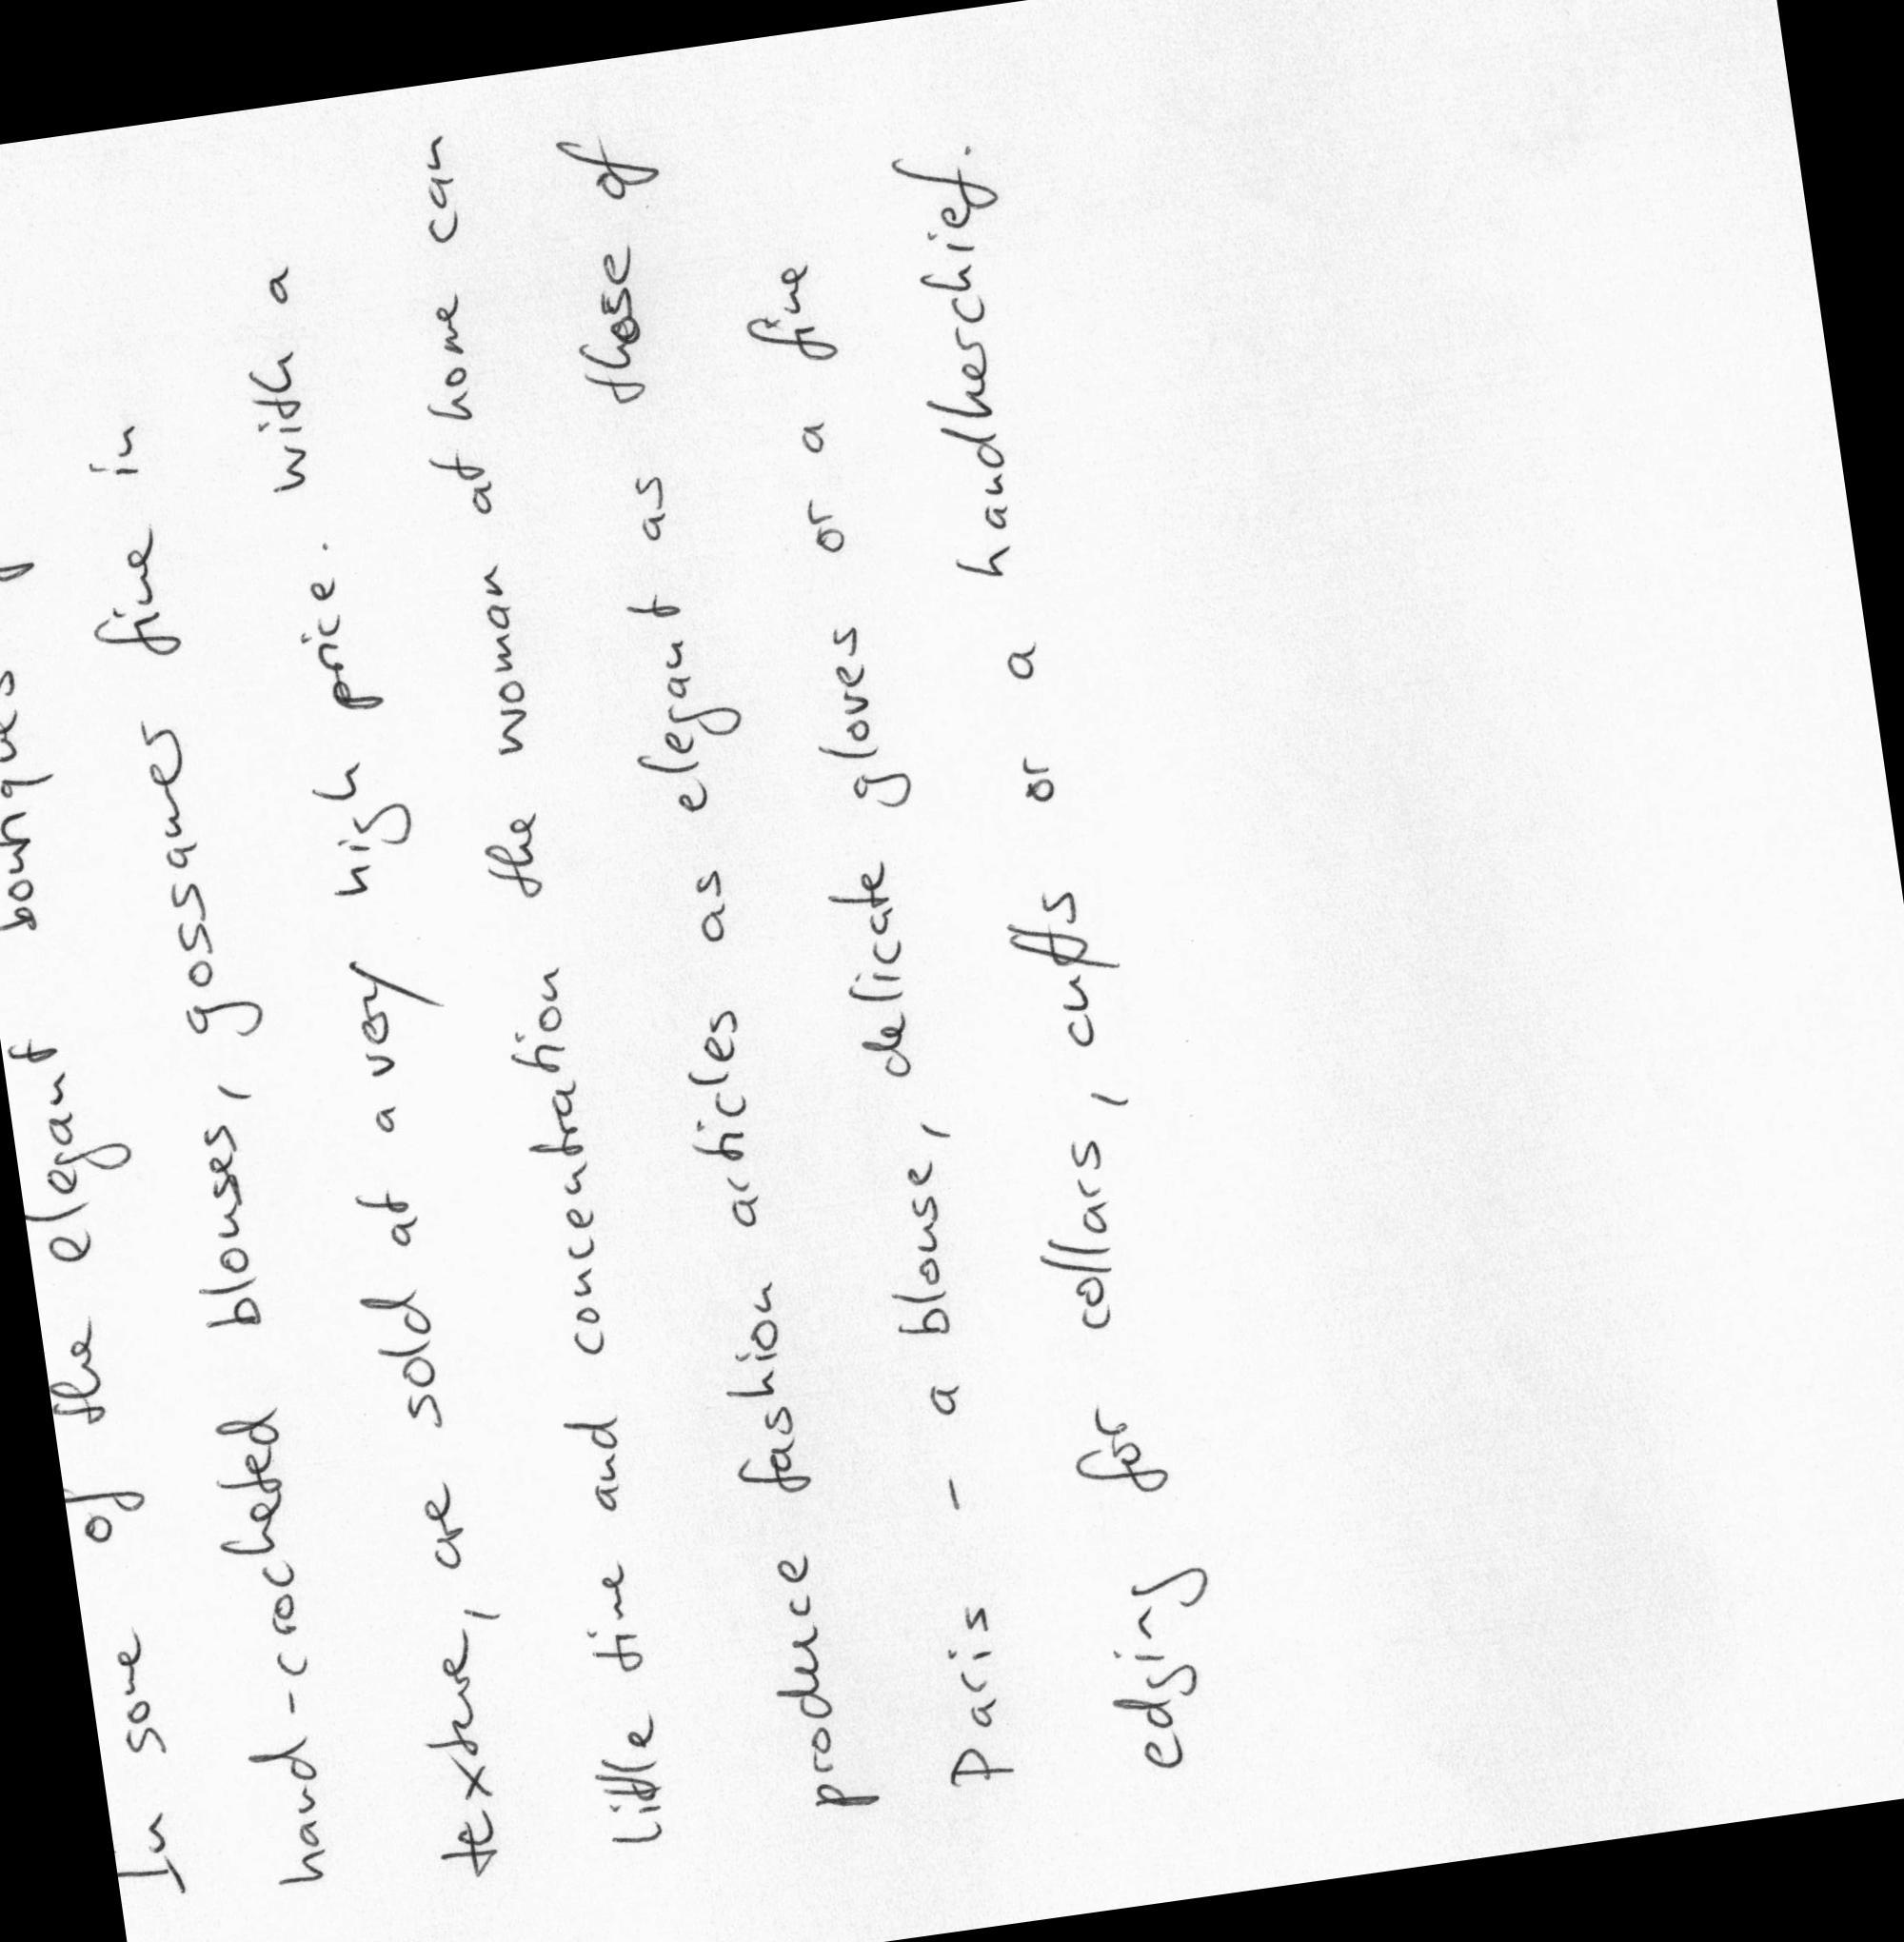 In some of the elegant boutiques
hand-crocheted blouses, gossamer fine in
texture, are sold at a very high price. with a
little time and concentration the woman at home can
produce fashion articles as elegant as those of
Paris - a blouse, delicate gloves or a fine
edging for collars, cuffs or a handkerchief.